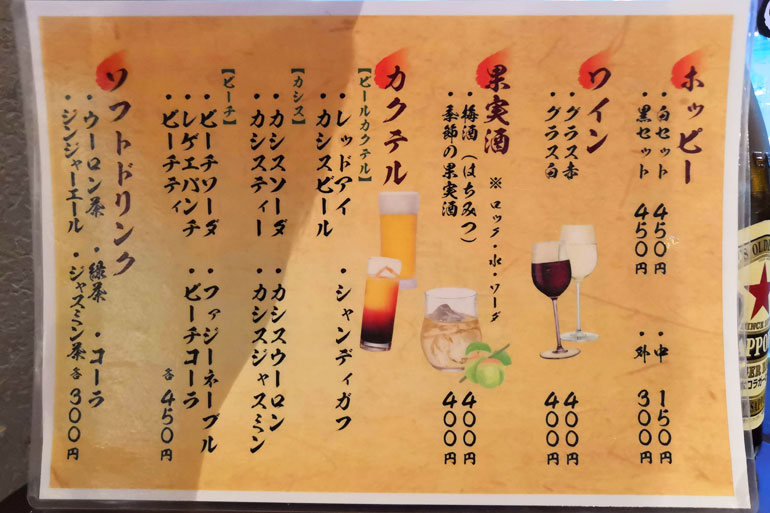 ホッピー
・白セット 450円 ・中 150円
・黒セット 450円 ・外 300円
ワイン
・グラス赤 400円
・グラス白 400円
果実酒 ※ ロック・水・ソーダ
・梅酒(はちみつ) 400円
・季節の果実酒 400円
カクテル
【ビールカクテル】
・レッドアイ ・シャンディガフ
・カシスビール
【カシス】
・カシスソーダ ・カシスウーロン
・カシスティー ・カシスジャスミン
【ピーチ】
・ピーチソーダ ・ファジーネーブル
・レゲエパンチ ・ピーチコーラ
・ピーチティ 各450円
ソフトドリンク
・ウーロン茶 ・緑茶 ・コーラ
・ジンジャーエール ・ジャスミン茶 各300円